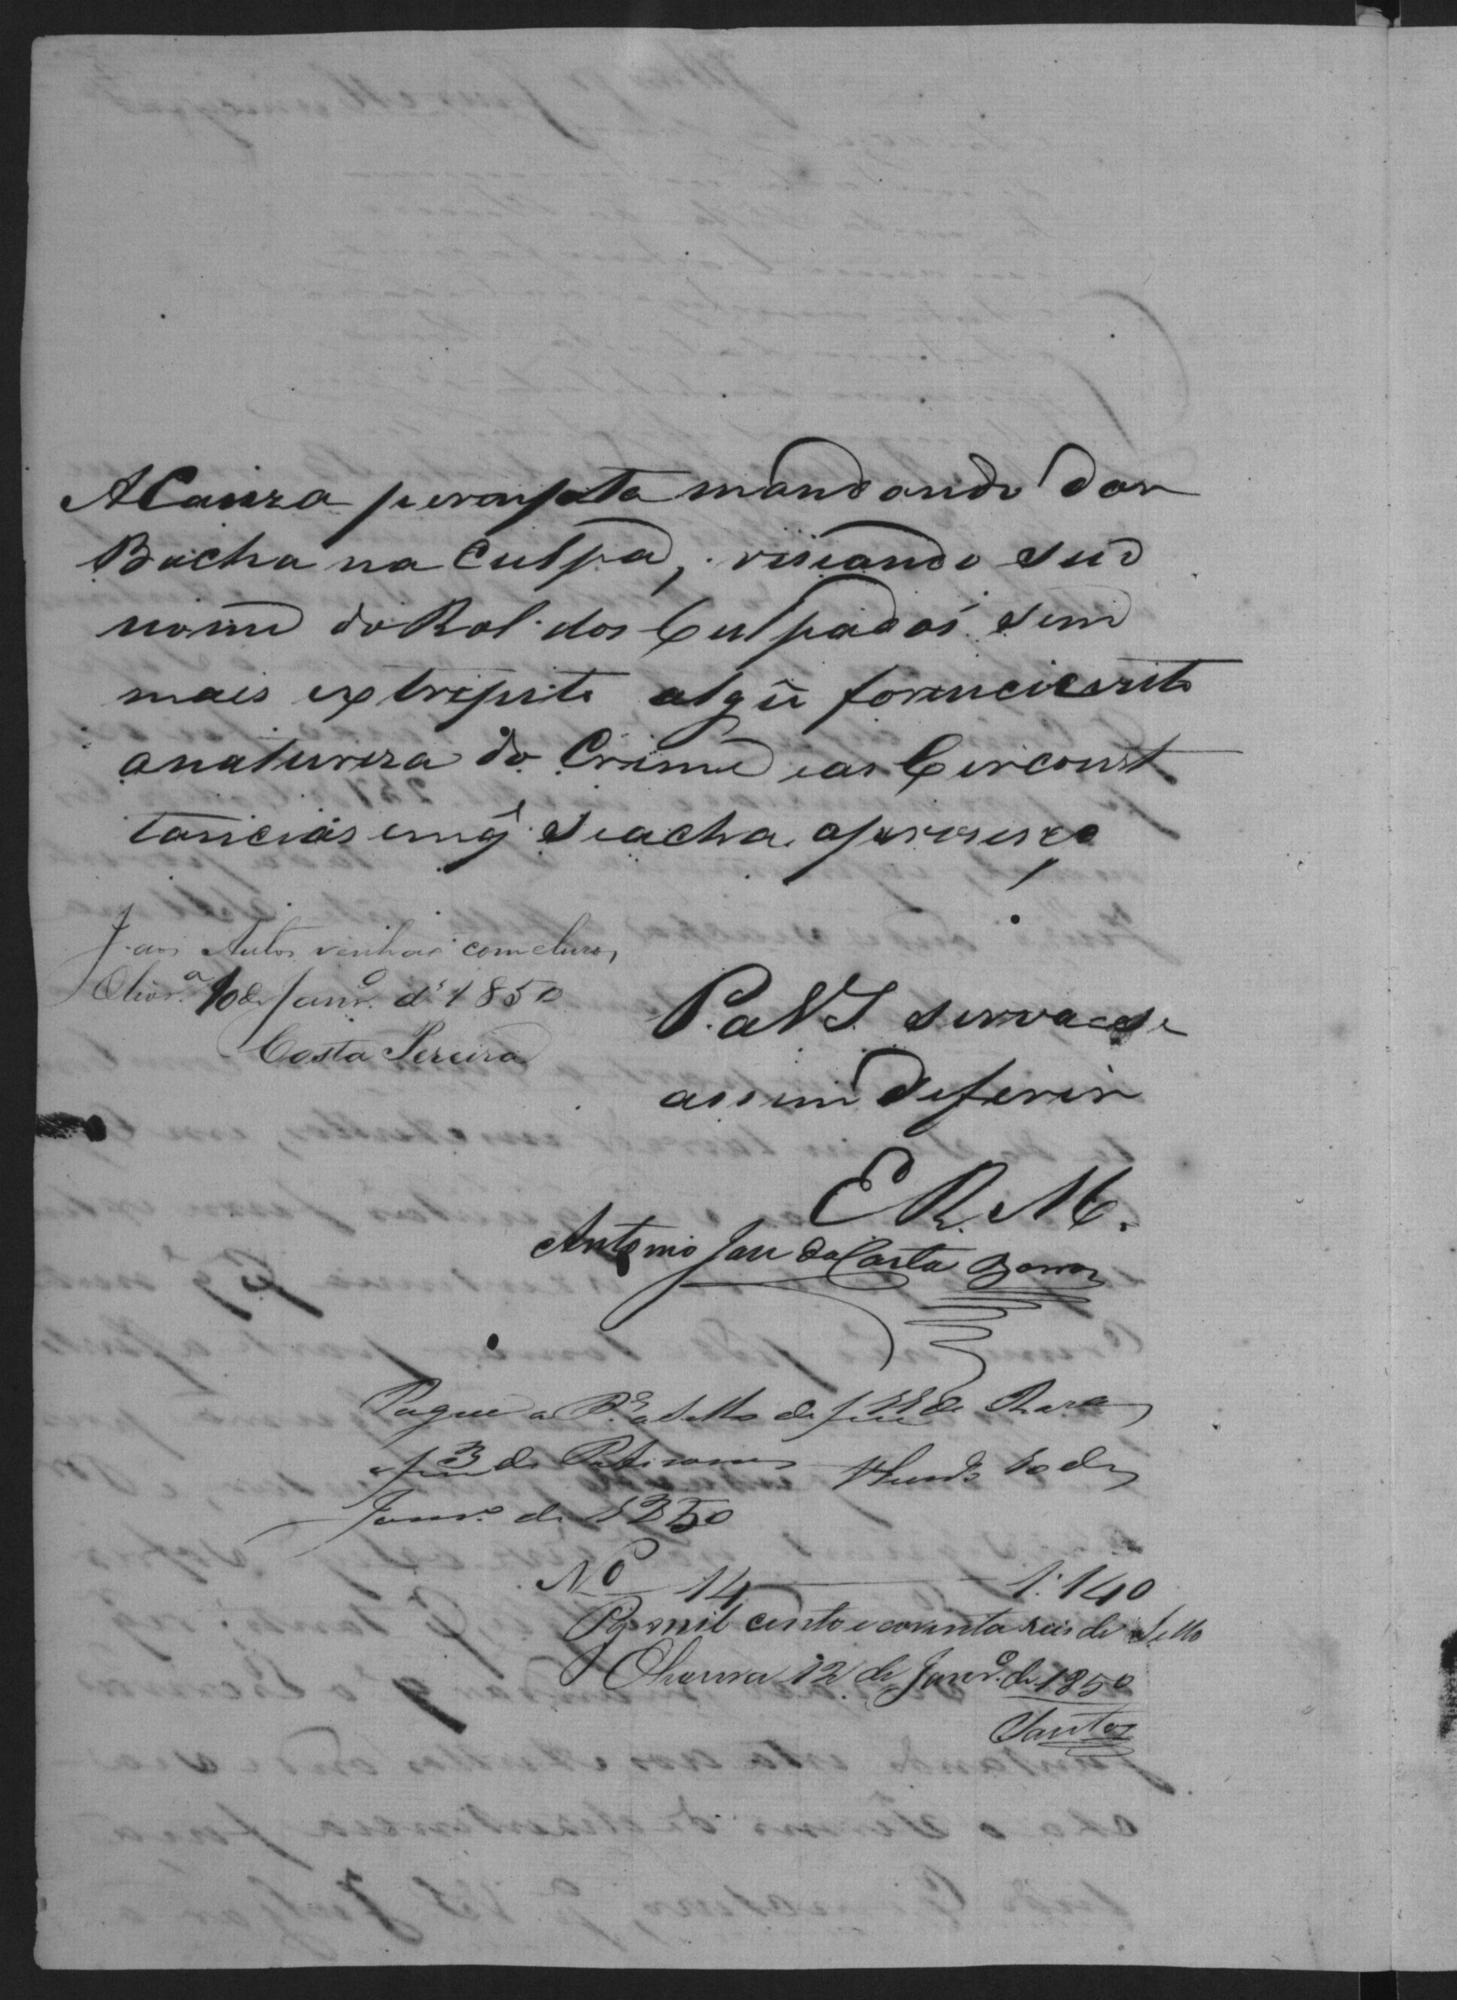 A Cauza perempta mandando dar
Bacha na Culpa, riscando seo
nome do Rol dos Culpados sem
mais extrepito algũ
a natureza do Crime e as Circonst
tancias em q̃ se acha, oferesse
J. aos Autos venhaõ comcluzos
Olivr.ª 10 de Janr.º d' 1850
Costa Pereira
P. a V S. servase
assim deferir
E. R. M.
Antonio Jose da Costa Barros
Pague a
de
Janr.º de 1850
Nº 14 1:140
Pg mil cento e corenta reis de Sello
Oliveira 12 de Janr.º de 1850
Santos